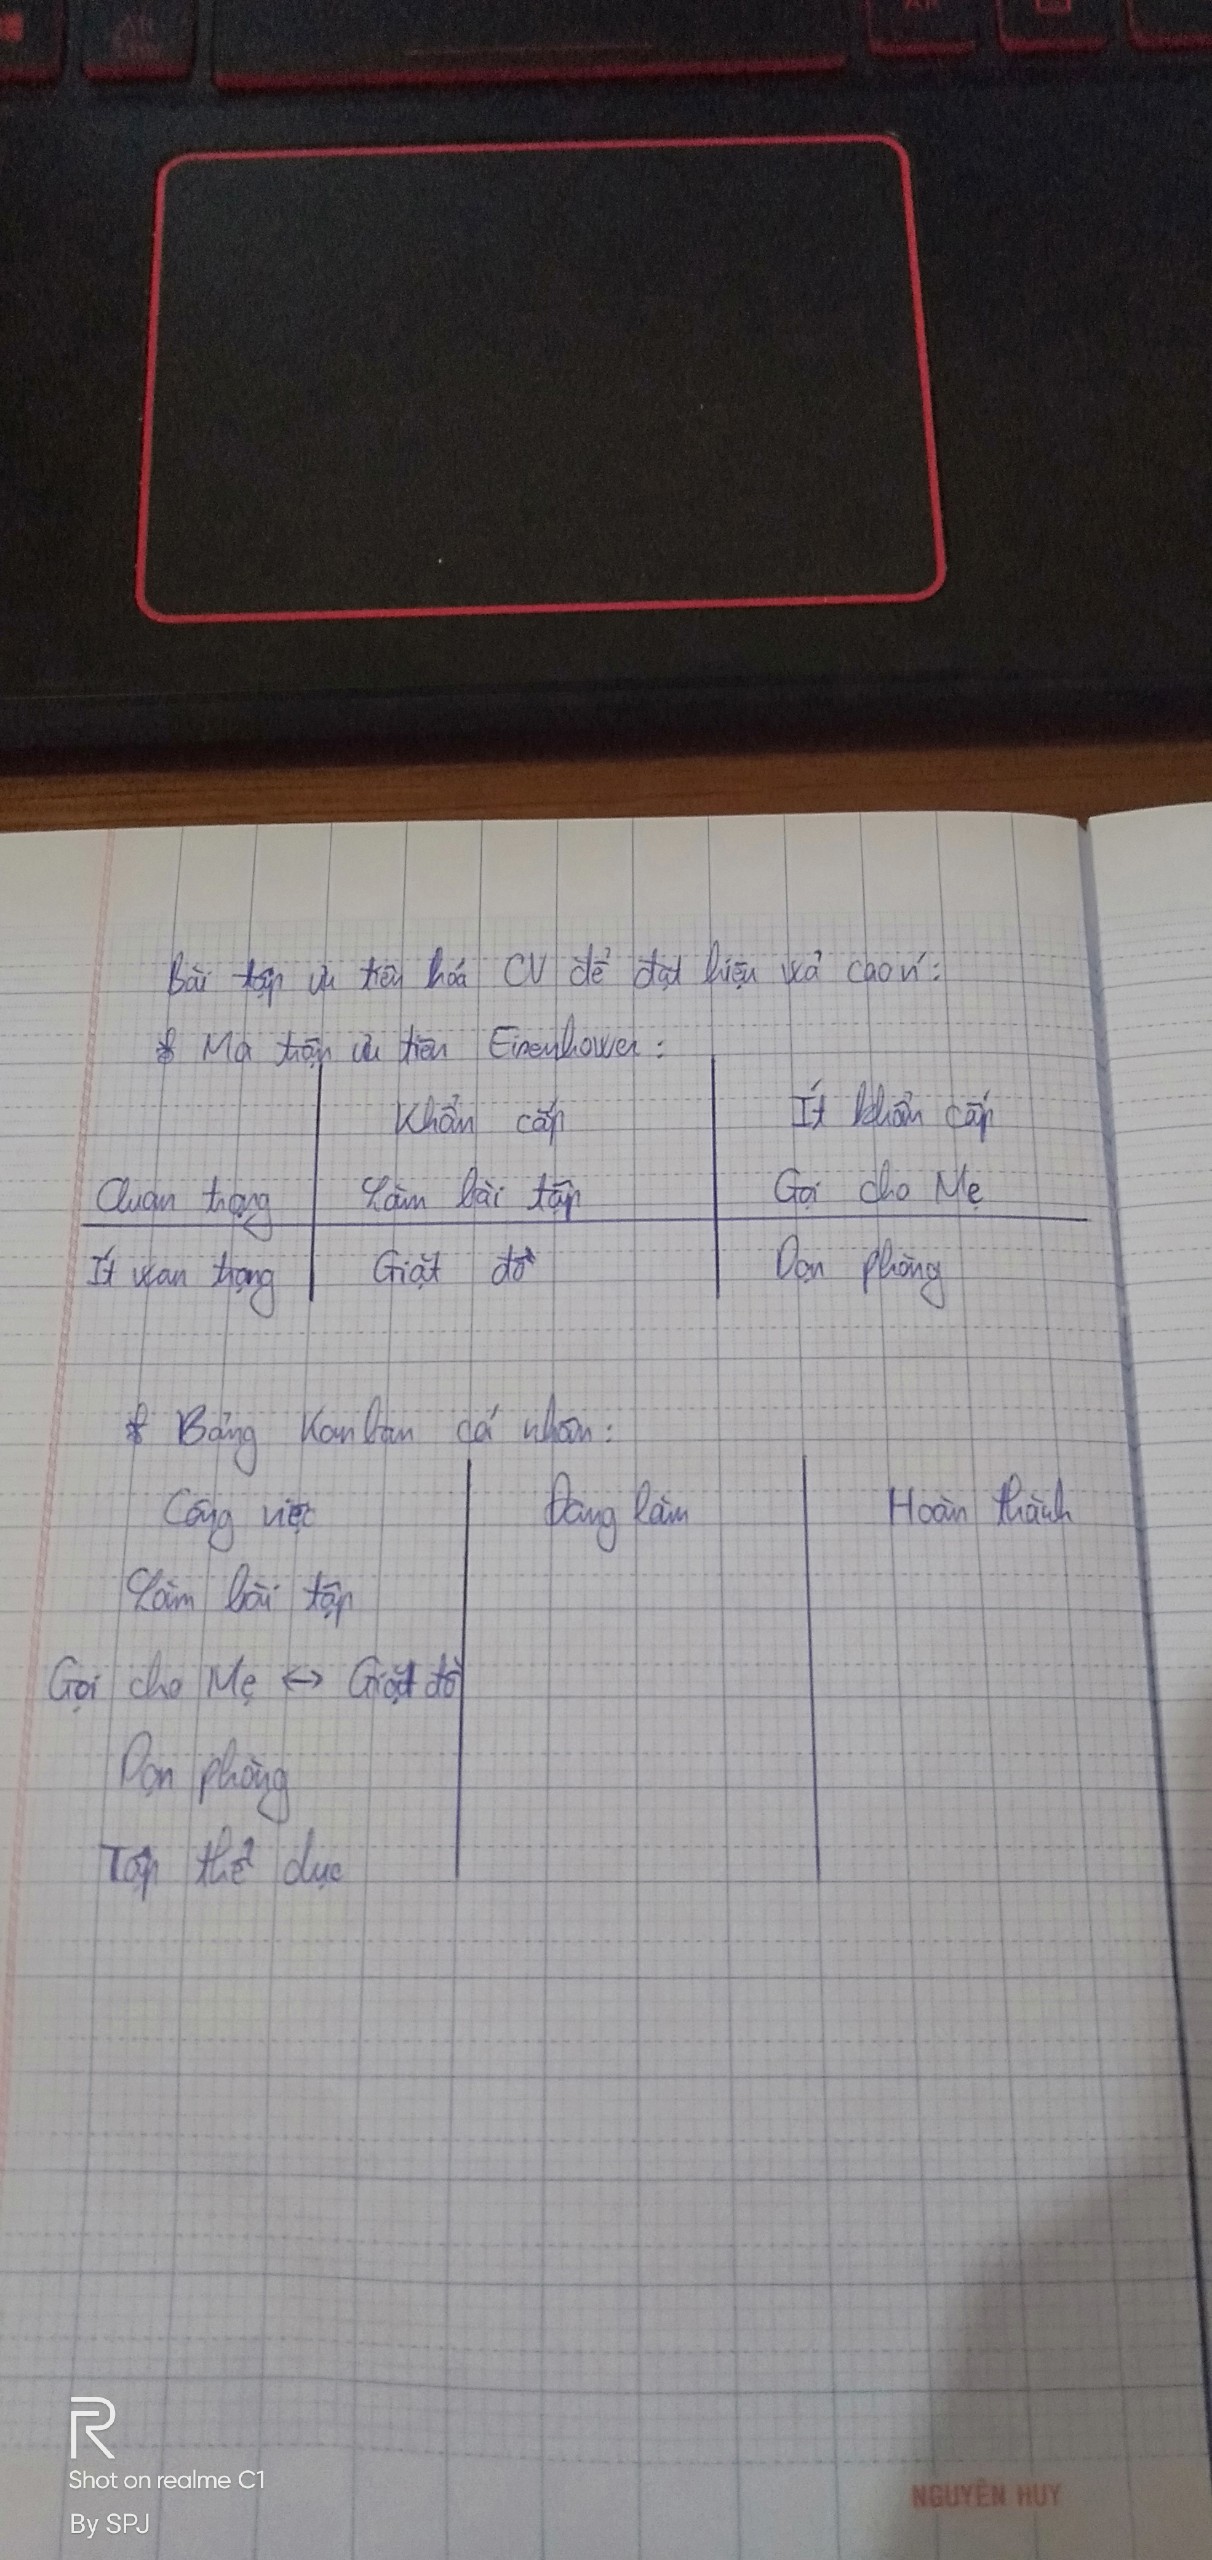 Bài tập ưu tiên hoá CV để đạt hiệu wả cao n':
* Ma trận ưu tiên Eisenhower:
Khẩn cấp Ít khẩn cấp
Quan trọng Làm bài tập Gọi cho Mẹ
Ít wan trọng Giặt đồ Dọn phòng
* Bảng Kanban cá nhân:
Công việc Đang làm Hoàn thành
Làm bài tập
Gọi cho Mẹ ↔ Giặt đồ
Dọn phòng
Tập thể dục
R
Shot on realme C1
By SPJ
NGUYÊN HUY